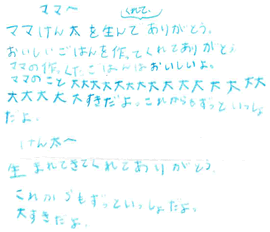 ママ～
ママけん太を生んでくれてありがとう。
おいしいごはんを作ってくれてありがとう
ママの作ってくれたごはんはおいしいよ。
ママのこと大大大大大大大大大大大大大大
大大大大大すきだよ。これからもずっといっしょ
だよ。
けん太～
生まれてきてくれてありがとう。
これからもずっていっしょだよ。
大すきだよ。